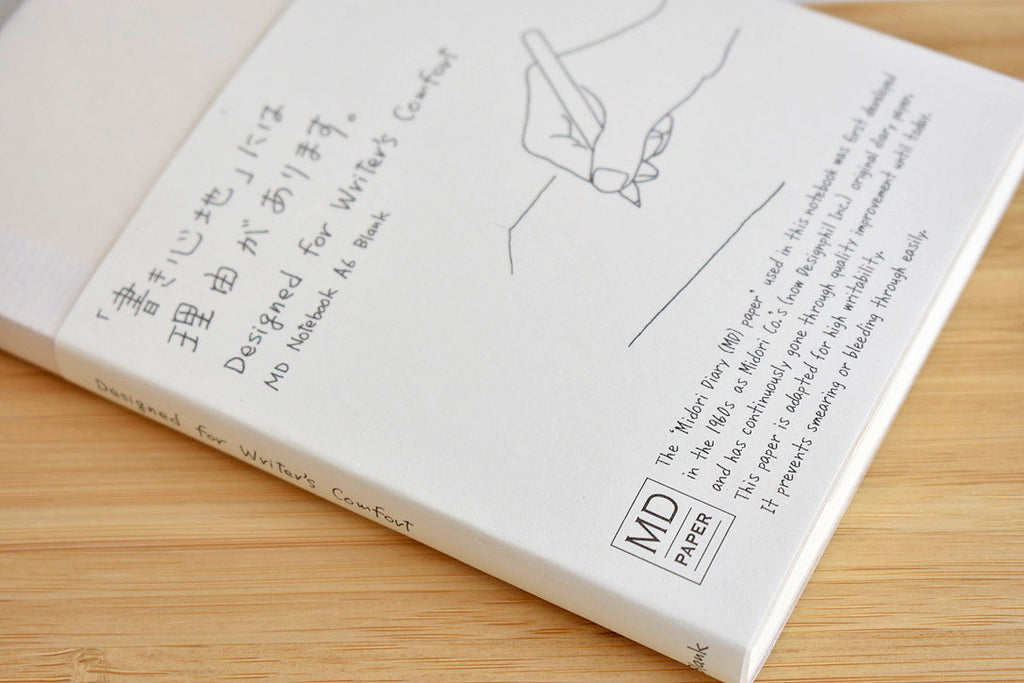 「書き心地」には
理由があります。
Designed for Writer's Comfort
MD Notebook A6 Blank
The "Midori Diary (MD) paper" used in this notebook was first developed
in the 1960s as Midori Co.'s (now Designphil Inc.) original diary paper,
and has continuously gone through quality improvement until today.
This paper is adapted for high writability.
It prevents smearing or bleeding through easily.
MD
PAPER
Designed for Writer's Comfort